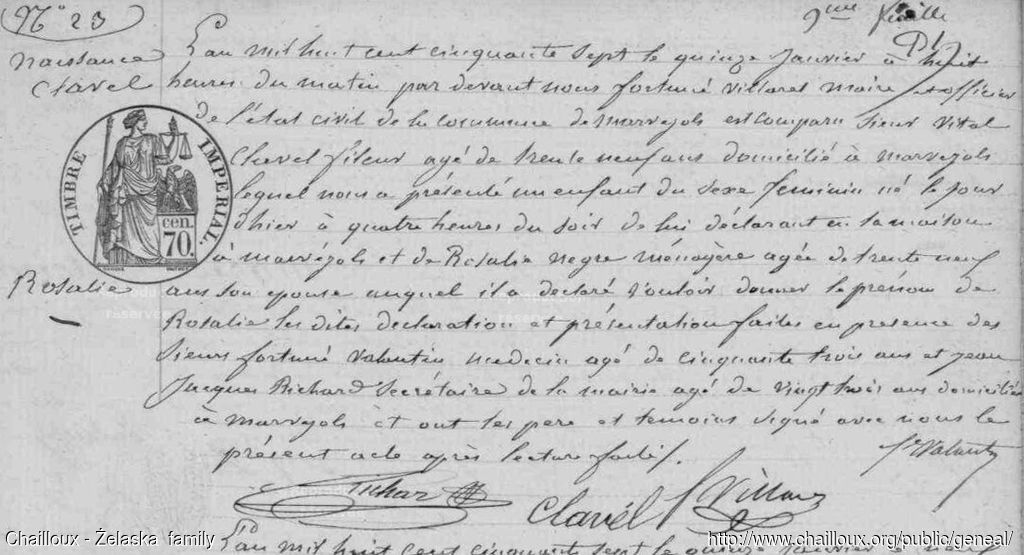 N° 23
9me feuille
Naissance
Clavel
L'an mil huit cent cinquante sept le quinze Janvier à huit
heures du matin par devant nous fortuné Villaret maire officier
de l'état civil de la commune de marvejols est comparu Sieur Vital
Clavel fileur agé de trente neuf ans domicilié à marvejols
lequel nous a présenté un enfant du sexe feminin né le jour
d'hier à quatre heures du soir de lui déclarant en sa maison
à marvejols et de Rosalie negre ménagère agée de trente neuf
ans son epouse auquel il a declaré vouloir donner le prénom de
Rosalie les dites declaration et présentation faites en presence des
Sieurs fortuné Valentin medecin agé de cinquante trois ans et jean
Jacques Richard Secrétaire de la mairie agé de vingt trois ans domiciliés
à marvejols et ont les pere et temoins signé avec nous le
présent acte après lecture faite.
Rosalie
TIMBRE IMPERIAL.
cen.
70.
fé Valentin
Clavel
L'an mil huit cent cinquante sept le quinze Janvier
Chailloux - Żelaska family
http://www.chailloux.org/public/geneal/